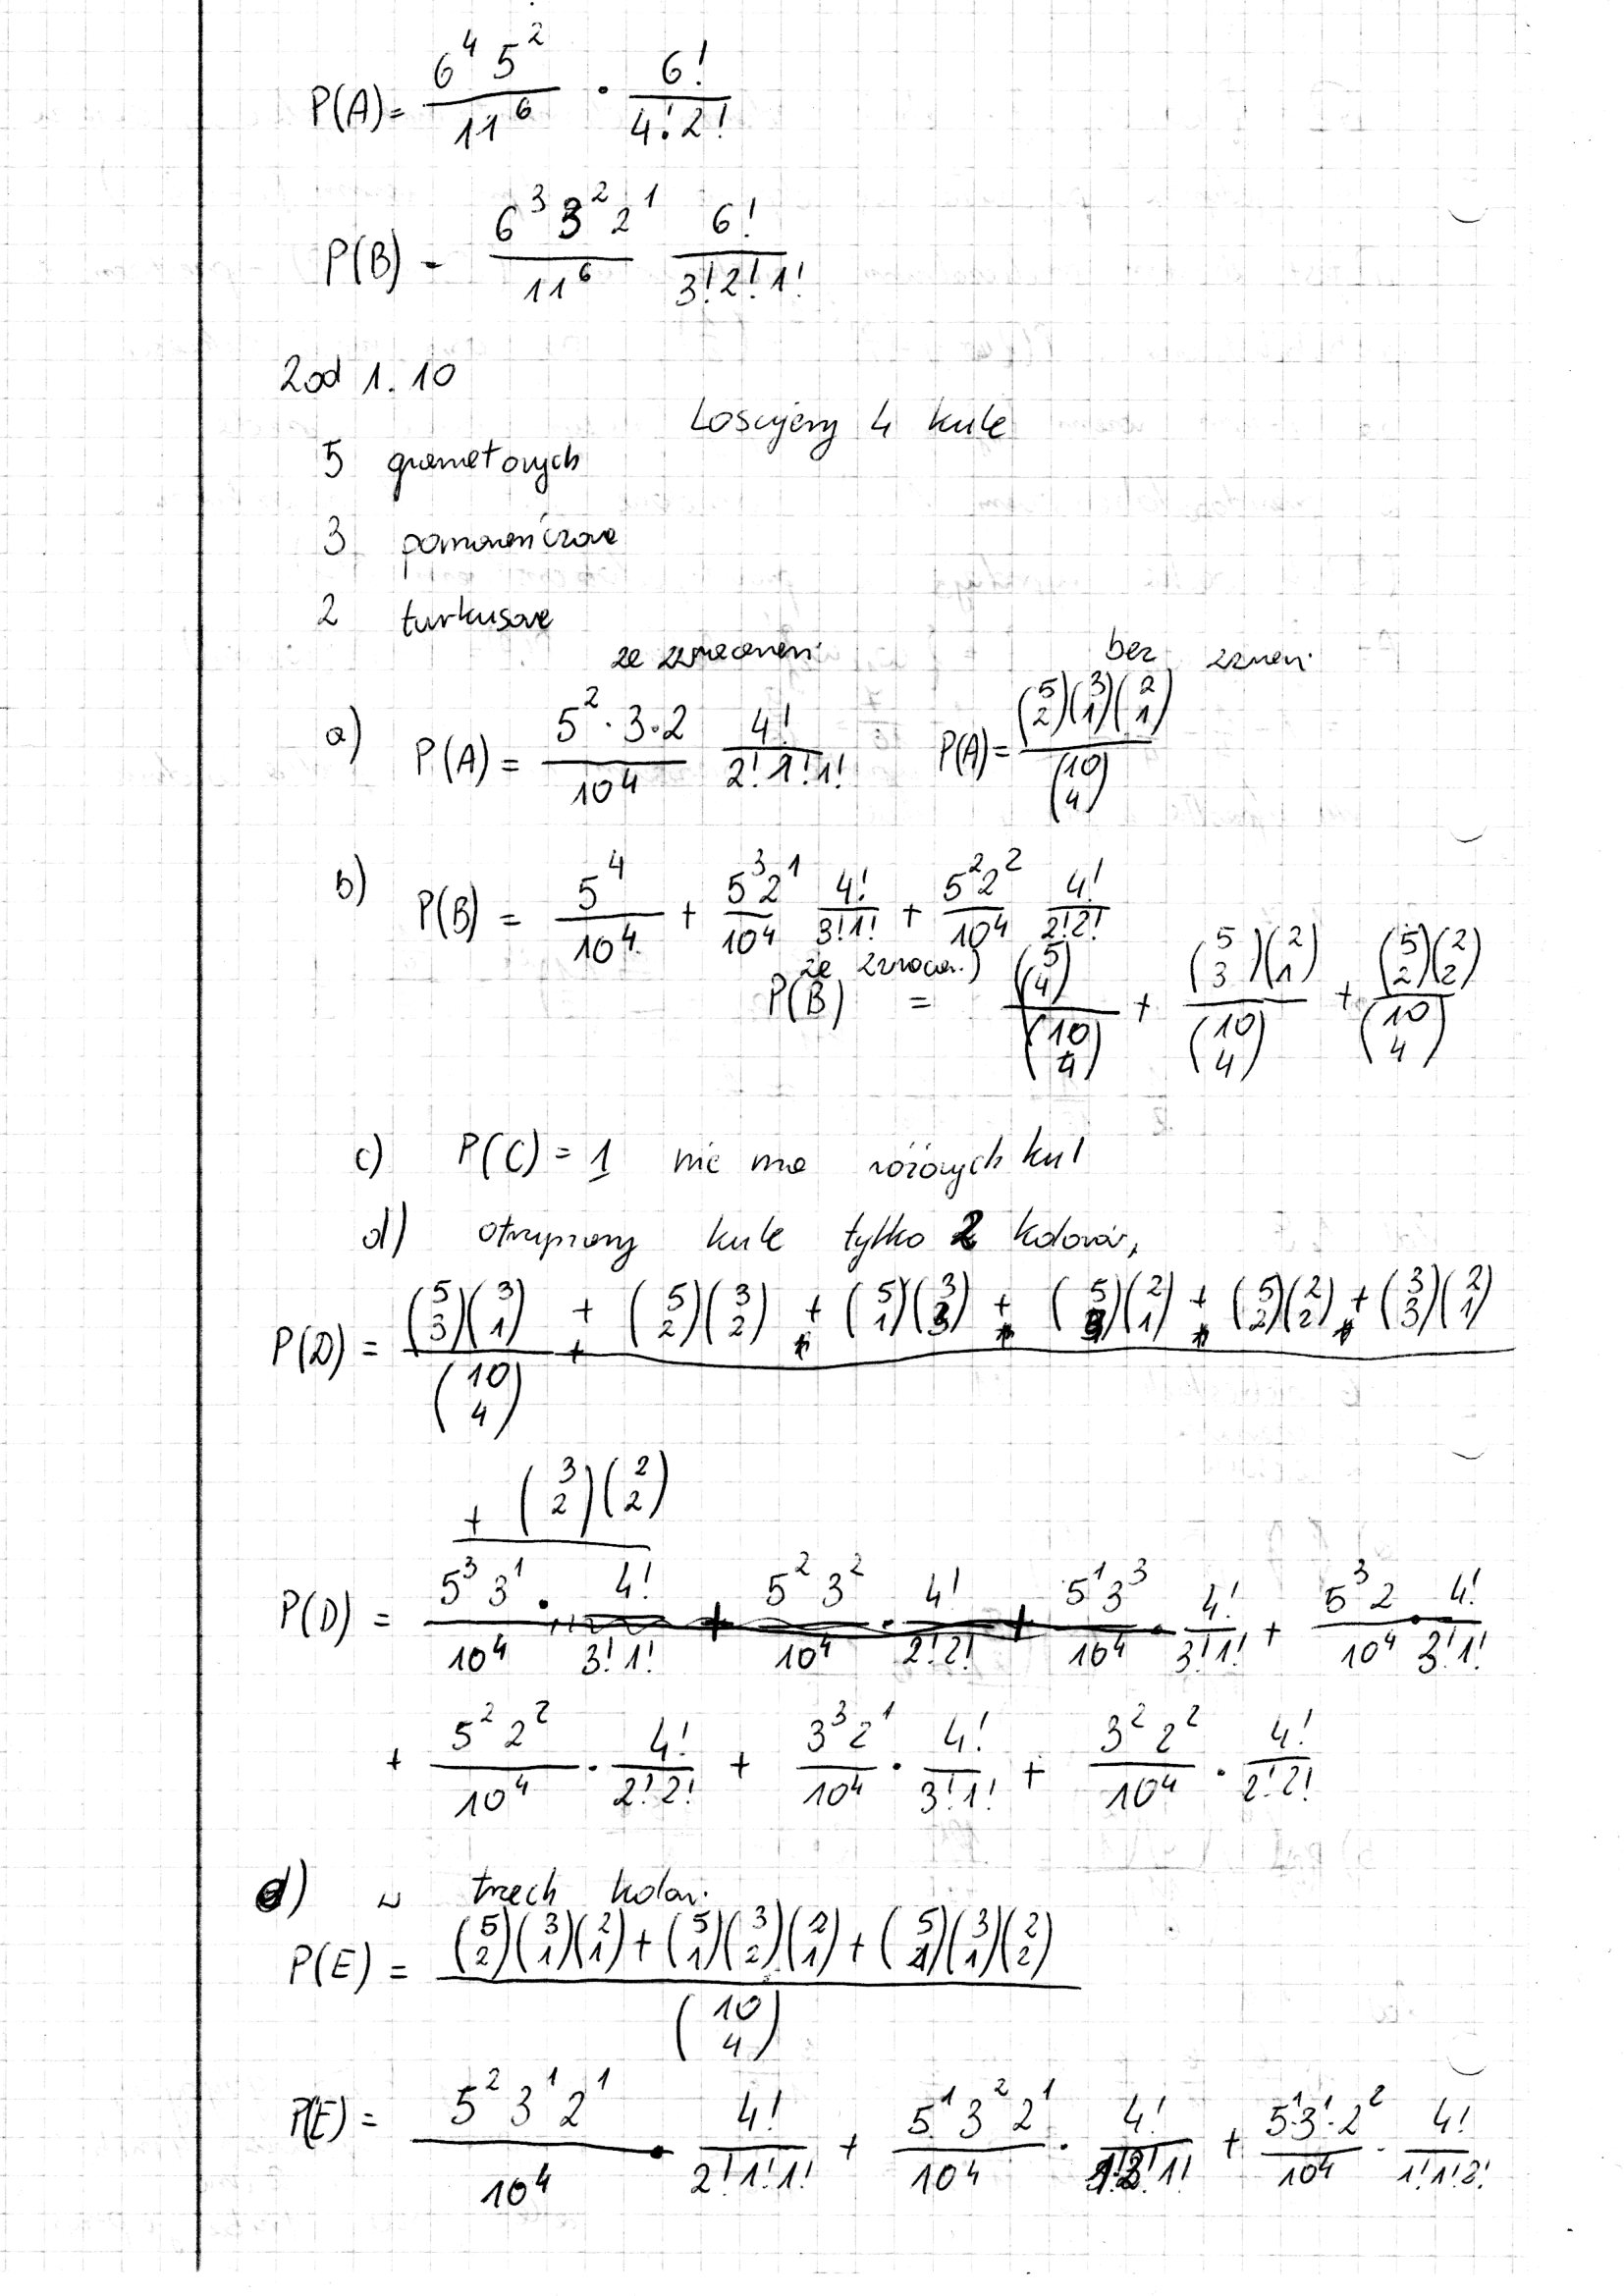 P(A) = \frac{6^4 5^2}{11^6} \cdot \frac{6!}{4! 2!}
P(B) - \frac{6^3 3^2 2^1}{11^6} \frac{6!}{3! 2! 1!}
Zad 1.10
Losujemy 4 kule
5 granatowych
3 pomarańczowe
2 turkusowe
ze zwracaniem. bez zwracan.
a) P(A) = \frac{5^2 \cdot 3 \cdot 2}{10^4} \frac{4!}{2! 1! 1!} P(A) = \frac{\binom{5}{2}\binom{3}{1}\binom{2}{1}}{\binom{10}{4}}
b) P(B) = \frac{5^4}{10^4} + \frac{5^3 2^1}{10^4} \frac{4!}{3! 1!} + \frac{5^2 2^2}{10^4} \frac{4!}{2! 2!}
ze zwracan.)
P(B) = \frac{\binom{5}{4}}{\binom{10}{4}} + \frac{\binom{5}{3}\binom{2}{1}}{\binom{10}{4}} + \frac{\binom{5}{2}\binom{2}{2}}{\binom{10}{4}}
c) P(C) = 1 nie ma różowych kul
d) otrzymamy kule tylko 2 kolorów,
P(D) = \frac{\binom{5}{3}\binom{3}{1} + \binom{5}{2}\binom{3}{2} + \binom{5}{1}\binom{3}{3} + \binom{5}{3}\binom{2}{1} + \binom{5}{2}\binom{2}{2} + \binom{3}{3}\binom{2}{1}}{\binom{10}{4}}
+ \binom{3}{2}\binom{2}{2}
P(D) = \frac{5^3 3^1}{10^4} \cdot \frac{4!}{3! 1!} + \frac{5^2 3^2}{10^4} \cdot \frac{4!}{2! 2!} + \frac{5^1 3^3}{10^4} \cdot \frac{4!}{3! 1!} + \frac{5^3 2}{10^4} \cdot \frac{4!}{3! 1!}
+ \frac{5^2 2^2}{10^4} \cdot \frac{4!}{2! 2!} + \frac{3^3 2^1}{10^4} \cdot \frac{4!}{3! 1!} + \frac{3^2 2^2}{10^4} \cdot \frac{4!}{2! 2!}
e) w trzech kolor.
P(E) = \frac{\binom{5}{2}\binom{3}{1}\binom{2}{1} + \binom{5}{1}\binom{3}{2}\binom{2}{1} + \binom{5}{1}\binom{3}{1}\binom{2}{2}}{\binom{10}{4}}
P(E) = \frac{5^2 3^1 2^1}{10^4} \cdot \frac{4!}{2! 1! 1!} + \frac{5^1 3^2 2^1}{10^4} \cdot \frac{4!}{1! 2! 1!} + \frac{5^1 \cdot 3^1 \cdot 2^2}{10^4} \cdot \frac{4!}{1! 1! 2!}